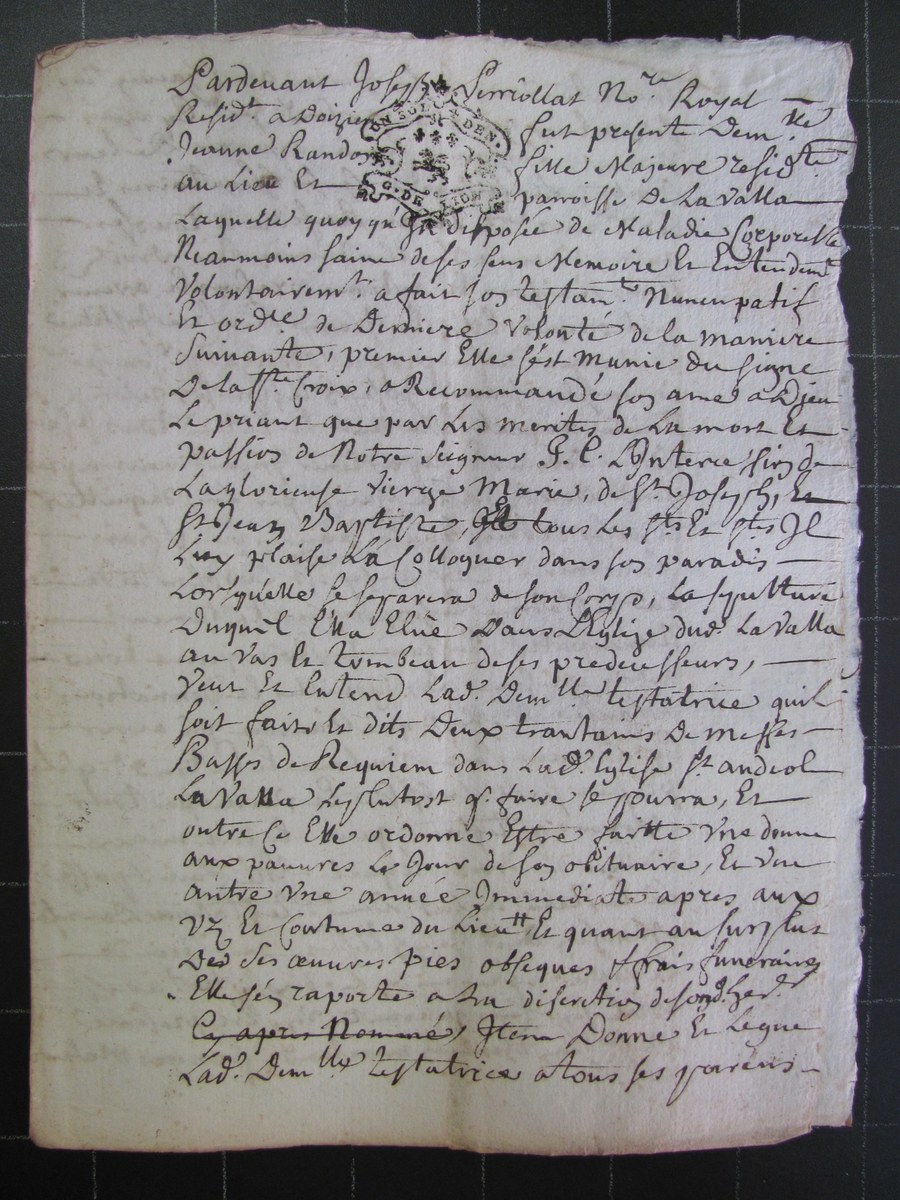 Pardevant Joseph Perriollat No.re Royal
Resid.t a Doizieu fut present Dem.lle
Jeanne Randon fille Majeure resid.te
au Lieu Et parroisse De La Valla
UN SOL 4 DEN.
G. DE LION
Laquelle quoyqu'Jndisposée de Maladie Corporelle
Neanmoins saine de ses sens Memoire Et Entendem.t
Volontairem.t a fait son testam.t Nuncupatif
Et ord.re de Derniere Volonté de la maniere
Suivante, premier Elle s'est Munie du signe
De la S.te Croix, a Recommandé son ame a Djeu
Le priant que par Les merites de La mort Et
passion de Notre Seigneur J. C. L'Jntercession de
La glorieuse Vierge Marie, de S.t Joseph, Et
S.t Jean Baptiste, tous Les S.ts Et S.tes Jl
Luy plaise La Colloquer dans son paradis
Lorsqu'elle se separera de son Corps, La sepulture
Duquel Ell'a Elüe Dans L'Eglize dud. La Valla
au Vas Et tombeau de ses predecesseurs,
Veut Et Entend Lad. Dem.lle testatrice quil
soit faits Et dits Deux trantains De messes
Basses de Requiem dans Lad. Eglise S.t andeol
La Valla Le plutost q. faire se pourra, Et
outre Ce Elle ordonne Estre faitte Vne donne
aux pauvres Le Jour de son obituaire, Et vne
autre Vne année Jmmediat.t apres aux
Vz Et Coutume du Lieu Et quant au surplus
Des Ses œuvres pies obseques & frais funeraires
Elle s'en raporte a La discretion de sond. her.r
Cy apres Nommé, Jtem Donne Et Legue
Lad. Dem.lle testatrice a tous ses parens